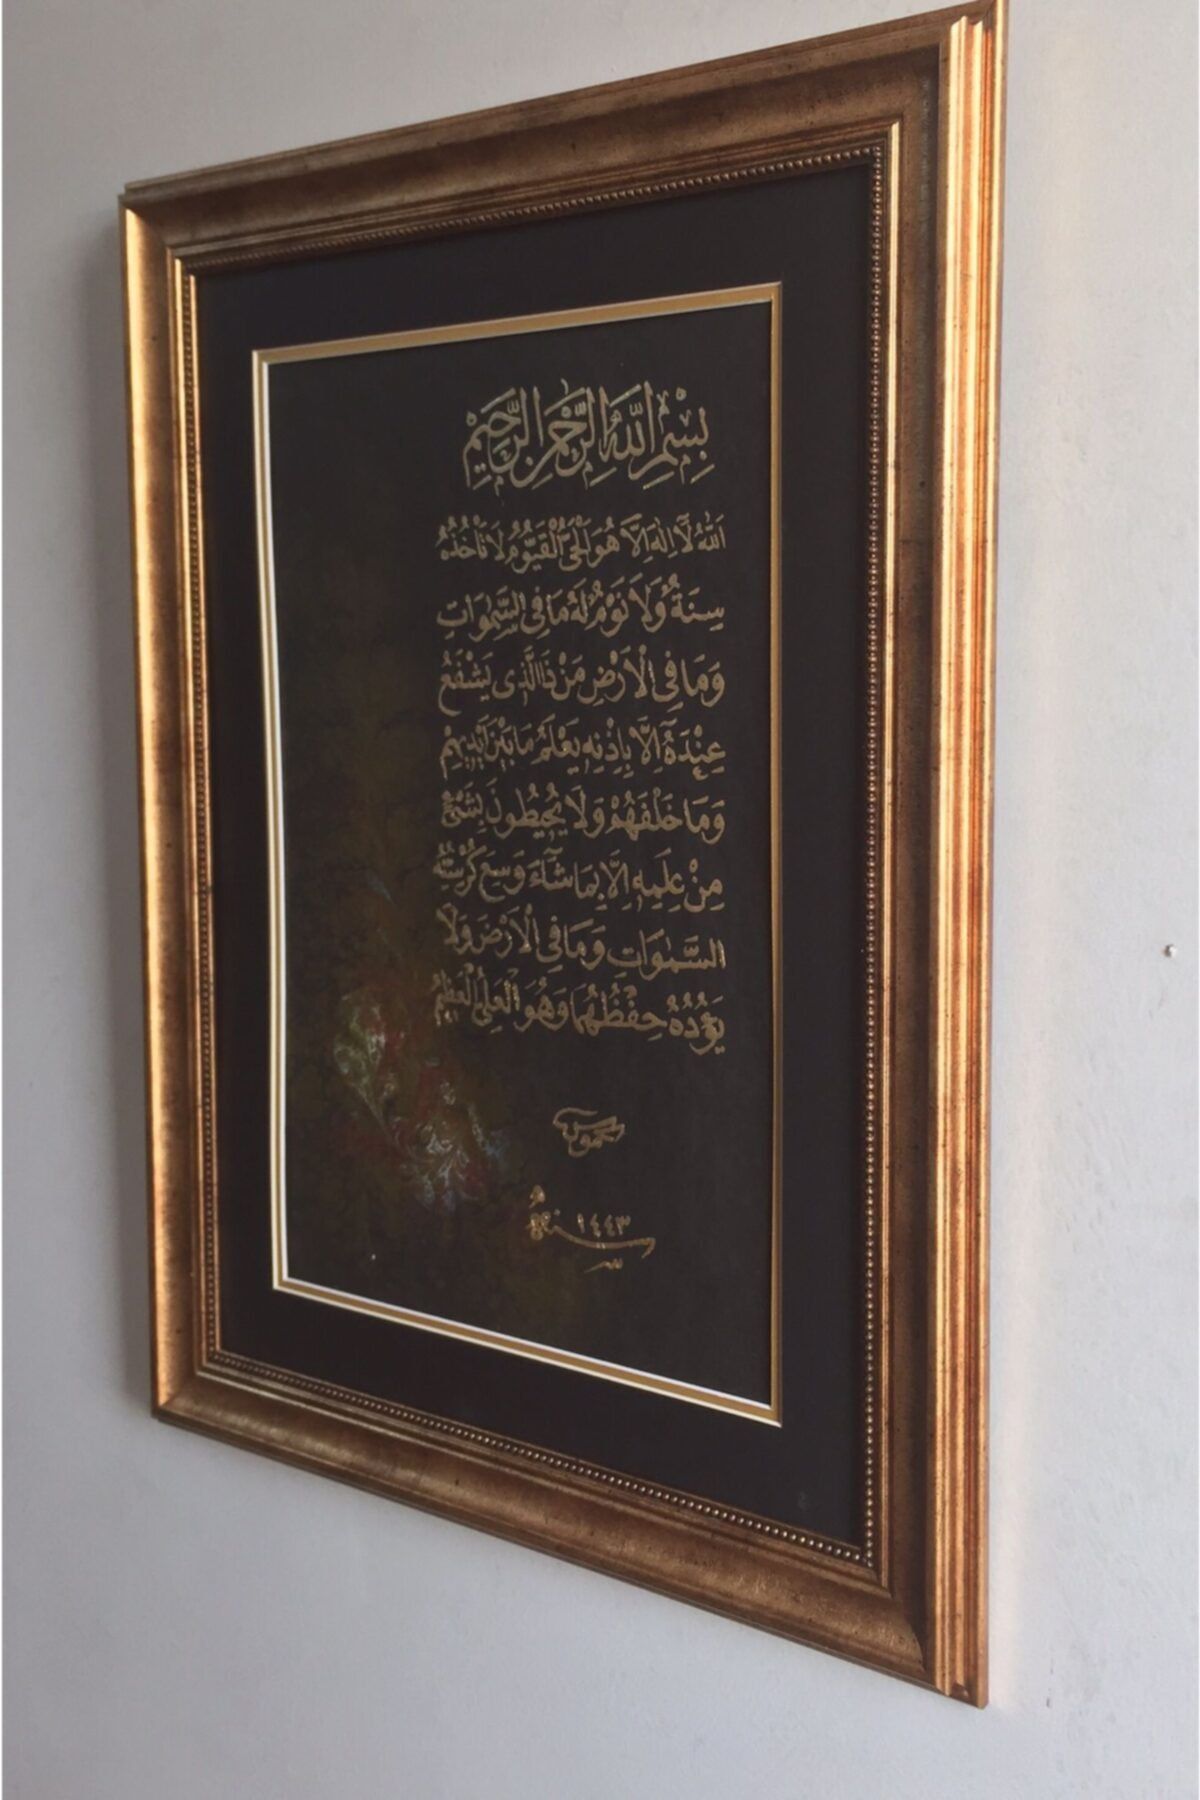 بِسْمِ اللّٰهِ الرَّحْمٰنِ الرَّحِيْمِ
اَللّٰهُ لَٓا اِلٰهَ اِلَّا هُوَ اَلْحَىُّ الْقَيُّومُ لَا تَأْخُذُهُ
سِنَةٌ وَلَا نَوْمٌ لَهُ مَا فِى السَّمٰوَاتِ
وَمَا فِى الْاَرْضِ مَنْ ذَا الَّذِى يَشْفَعُ
عِنْدَهُٓ اِلَّا بِاِذْنِهِ يَعْلَمُ مَا بَيْنَ اَيْدِيهِمْ
وَمَا خَلْفَهُمْ وَلَا يُحِيطُونَ بِشَىْءٍ
مِنْ عِلْمِهِ اِلَّا بِمَا شَٓاءَ وَسِعَ كُرْسِيُّهُ
السَّمٰوَاتِ وَمَا فِى الْاَرْضَ وَلَا
يَؤُدُهُ حِفْظُهُمَا وَهُوَ الْعَلِىُّ الْعَظِيمُ
سنه ١٤٤٣